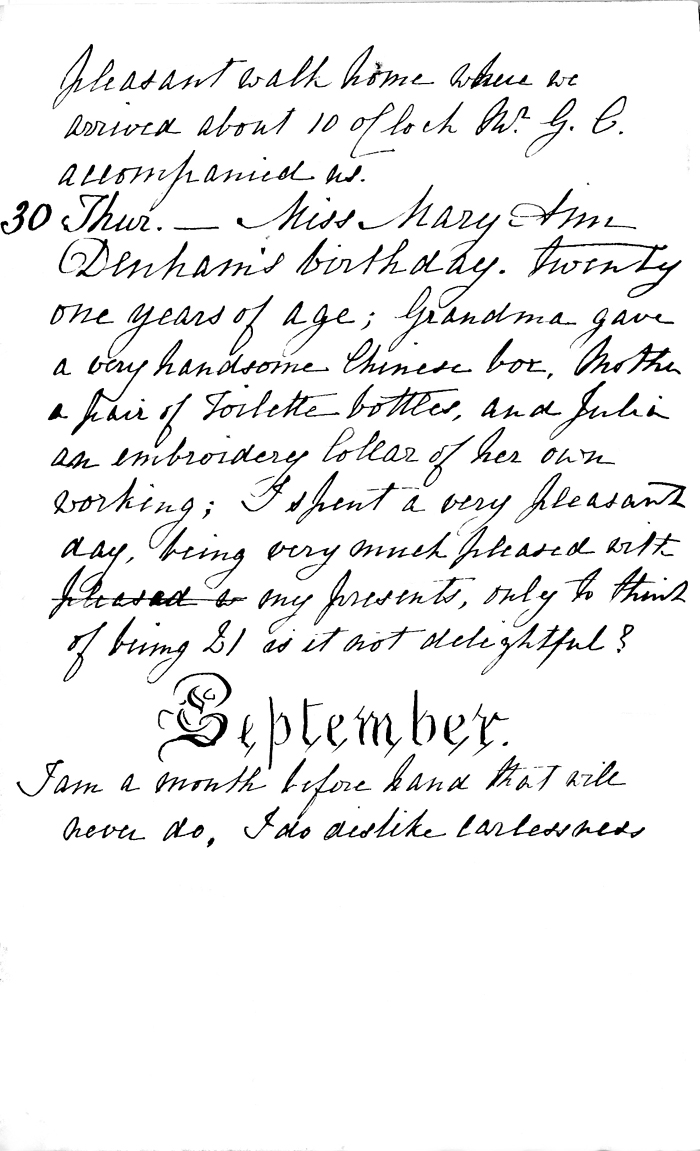 pleasant walk home where we
arrived about 10 oClock Mr. G. C.
accompanied us.
30 Thur. — Miss Mary Ann
Denham's birthday. twenty
one years of age; Grandma gave
a very handsome Chinese box, Mother
a pair of Toilette bottles, and Julia
an embroidery Collar of her own
working; I spent a very pleasant
day, being very much pleased with
pleased a my presents, only to think
of being 21 is it not delightful?
September.
I am a month before hand that will
never do, I do dislike carlessness